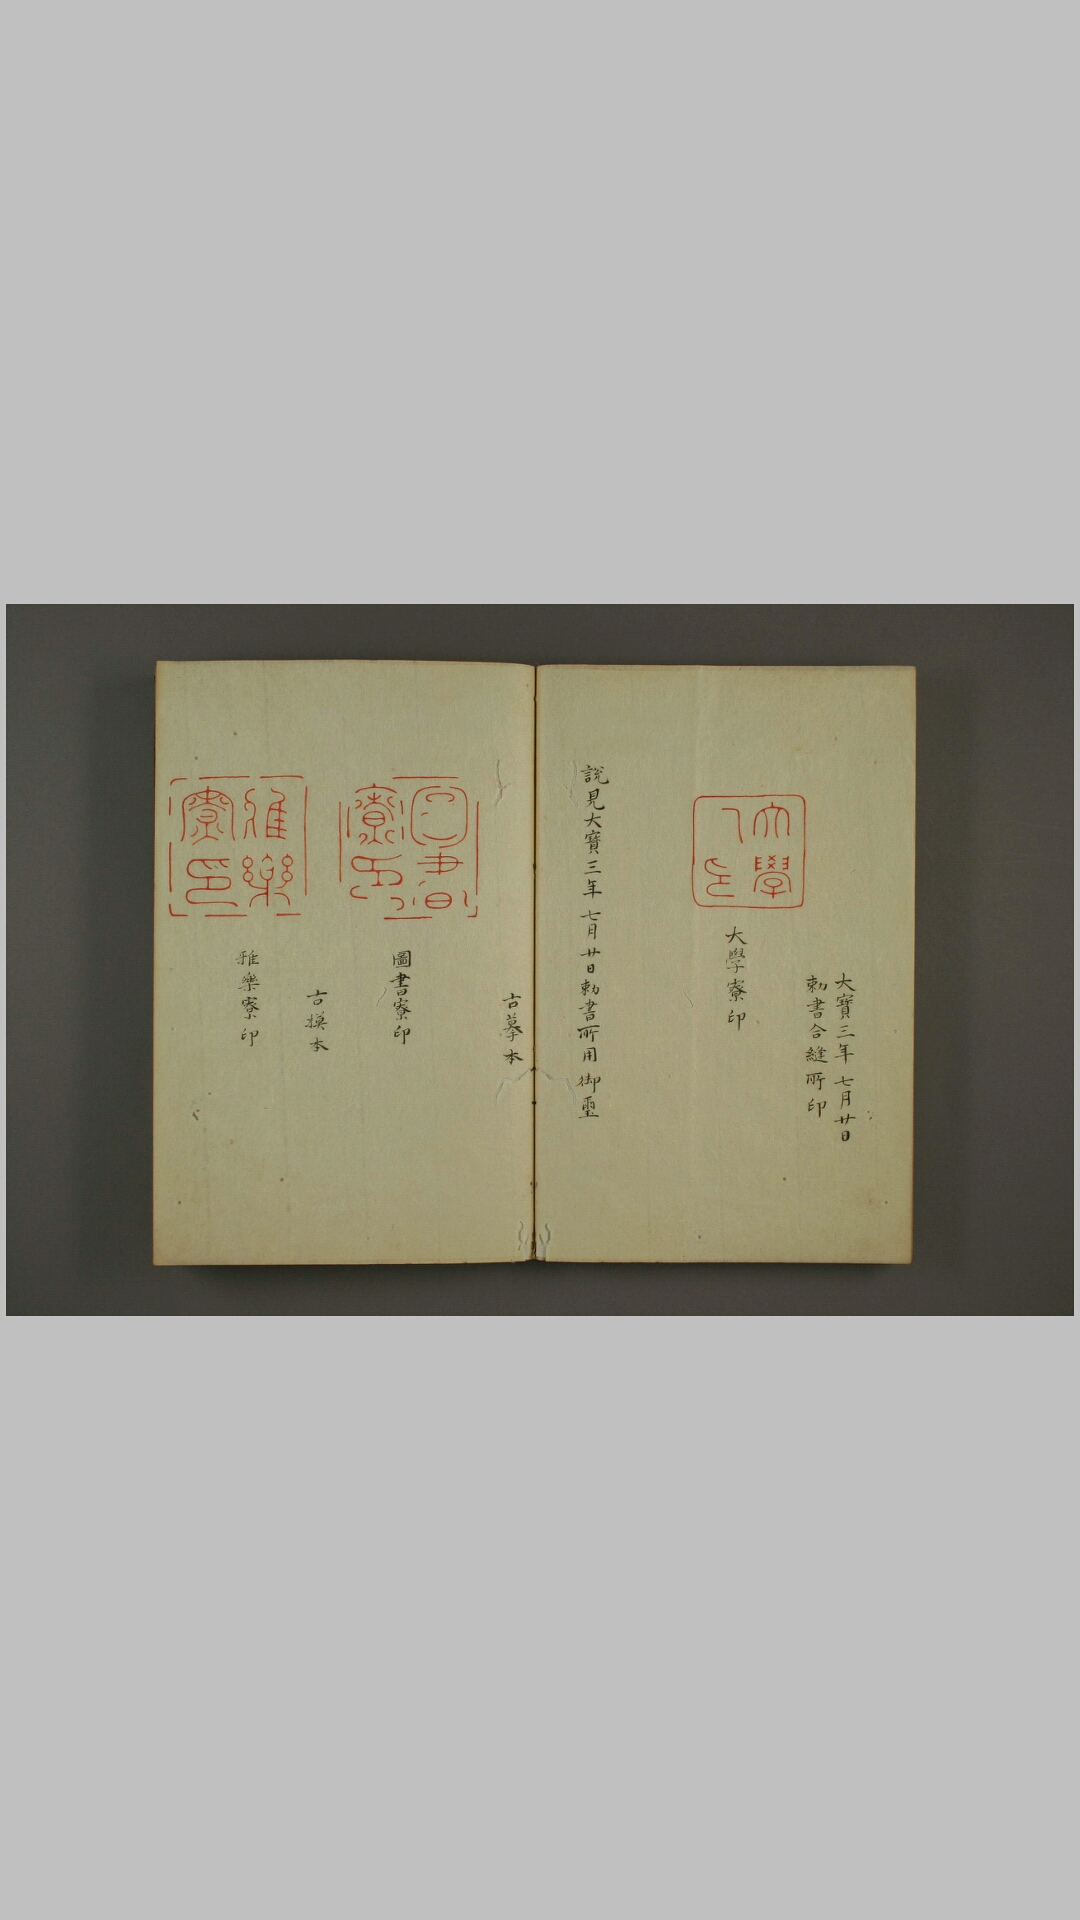 大寶三年七月廿日
勅書合縫所印
大學寮印
說見大寶三年七月廿日勅書所用御璽
古摹本
圖書寮印
古摸本
雅樂寮印
雅樂寮印